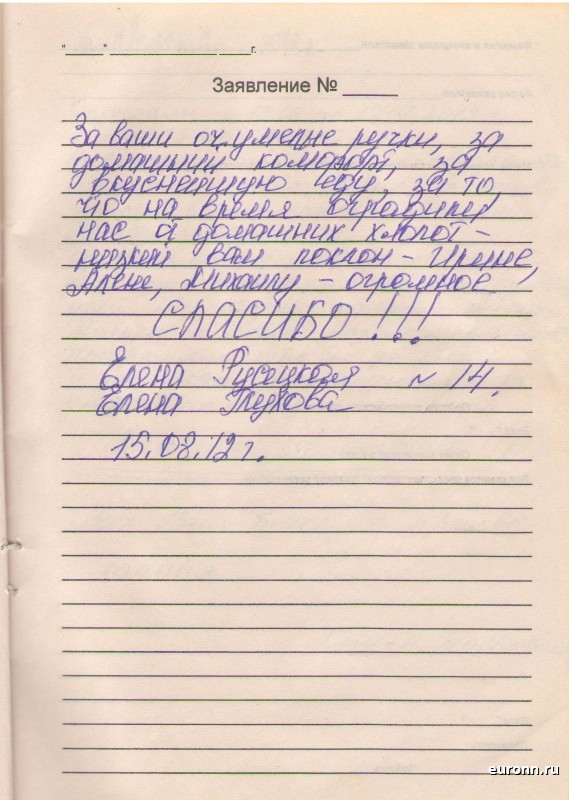 "____" ____________________ г.
Заявление № _____
За ваши оч.умелые ручки, за
домашний комфорт, за
вкуснейшую еду, за то,
что на время оградили
нас от домашних хлопот –
низкий вам поклон – Ирине,
Алене, Михаилу – огромное
СПАСИБО!!!
Елена Русецкая № 14.
Елена Глухова
15.08.12 г.
euronn.ru